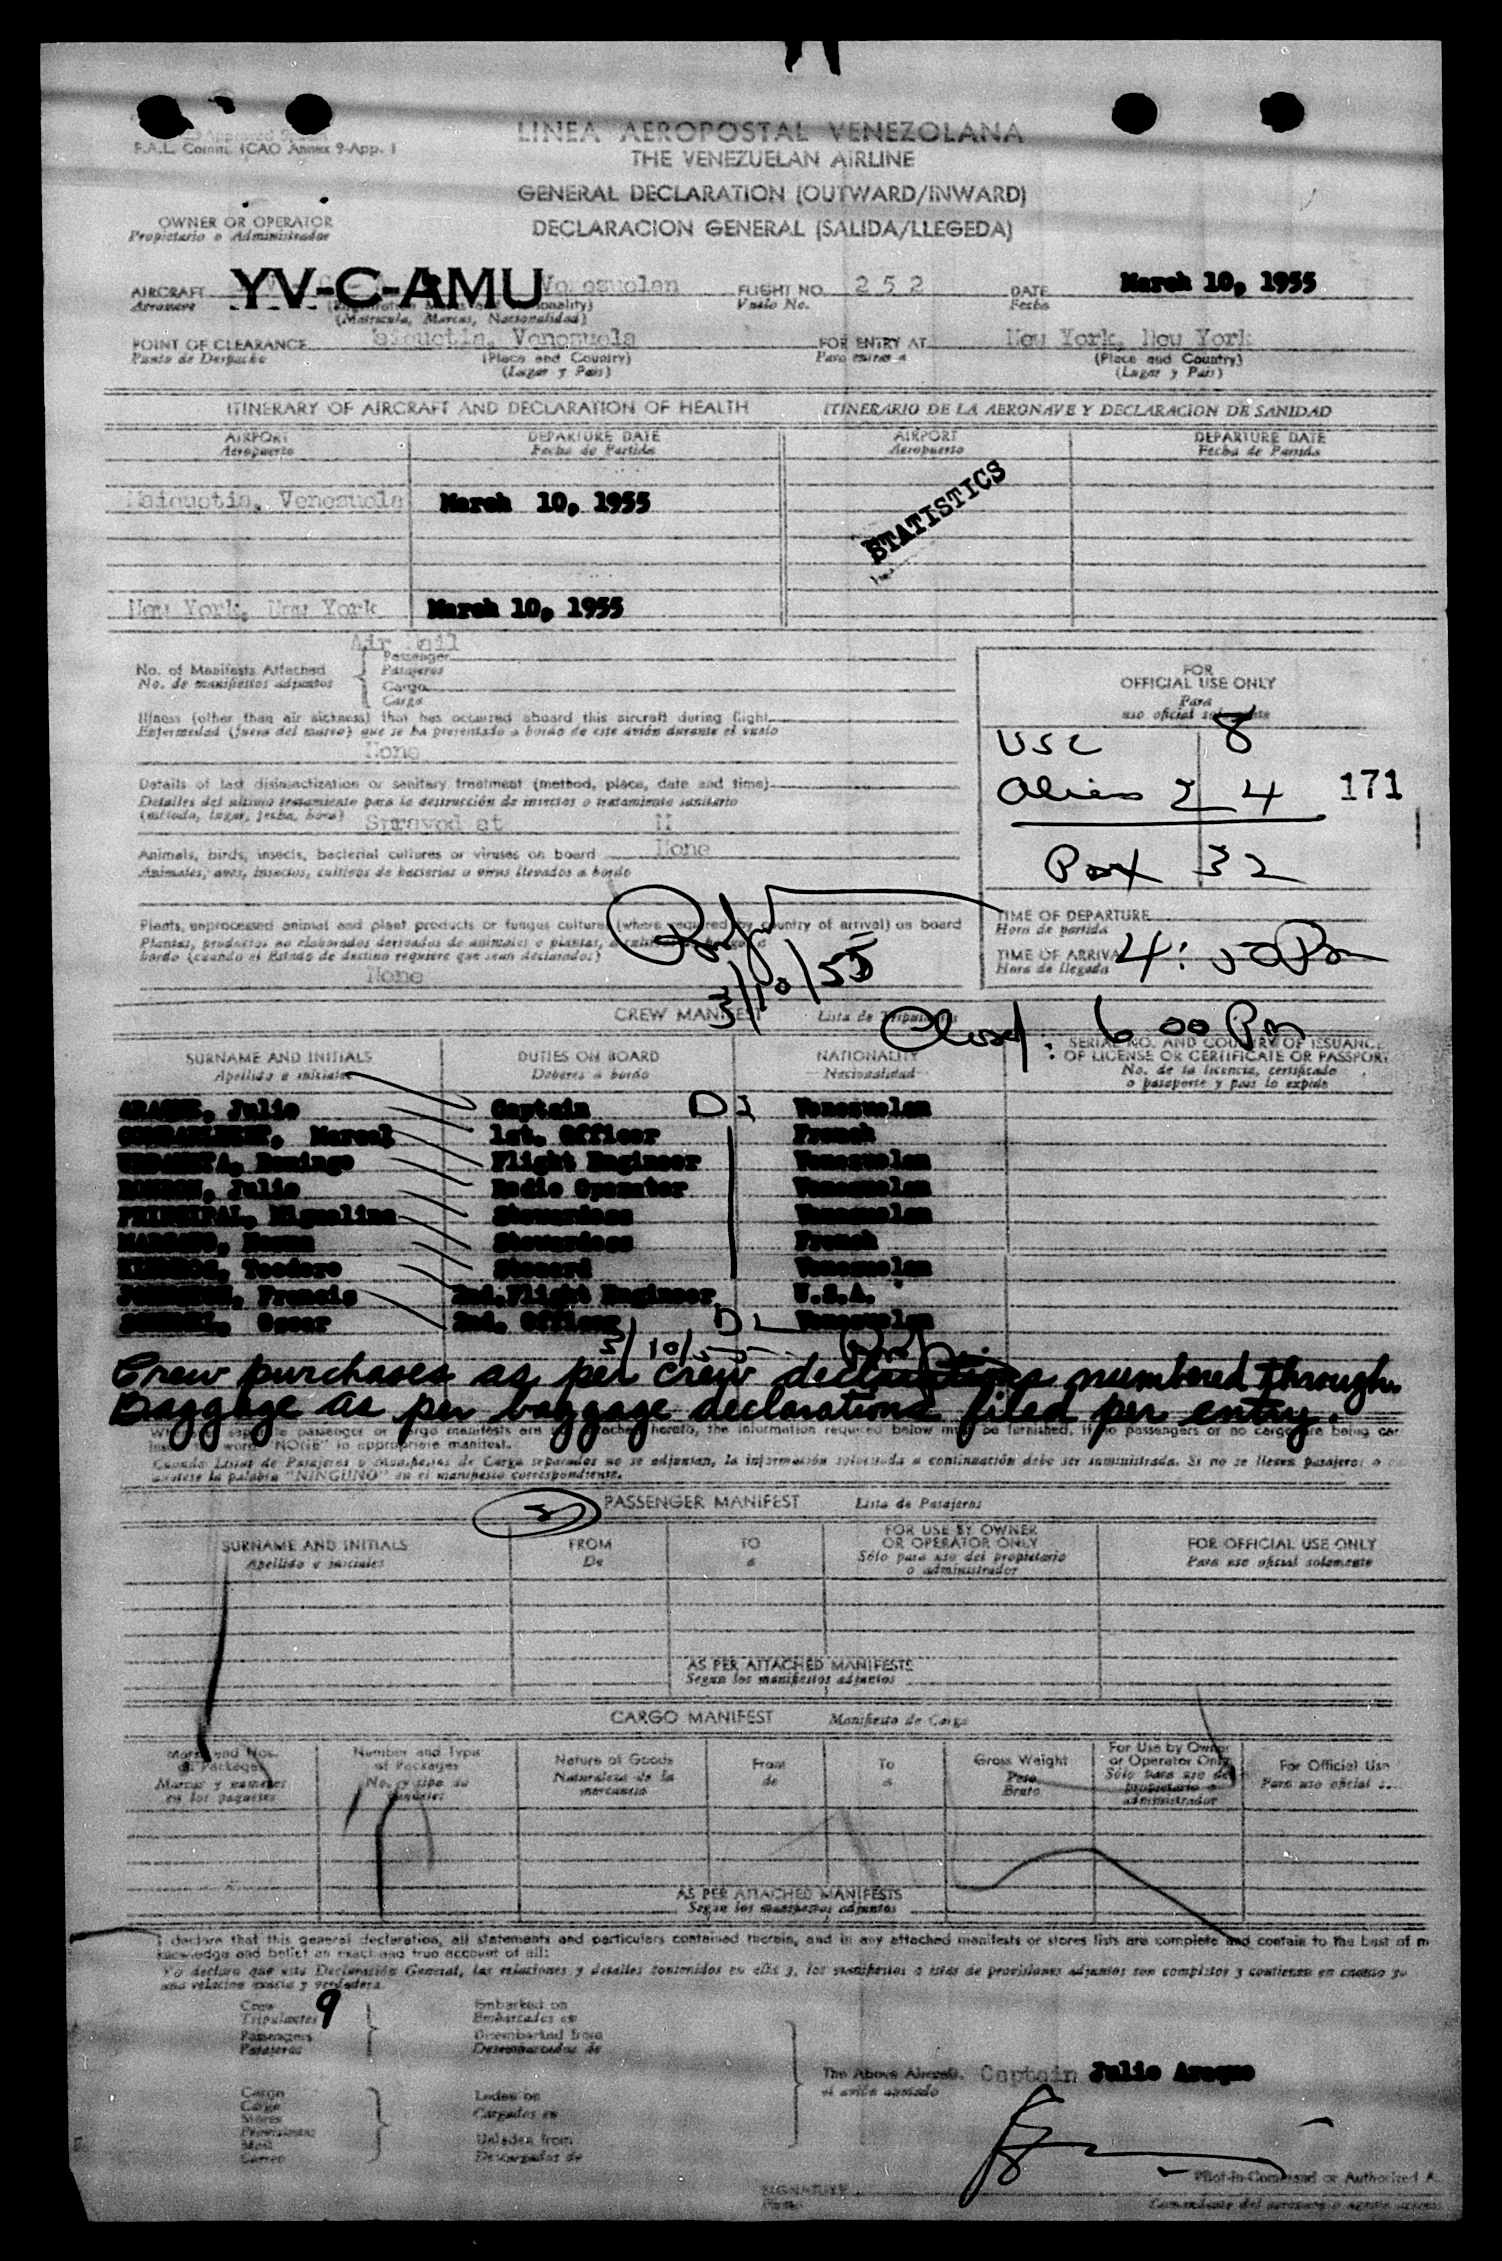 F.A.L. Comm. ICAO Annex 9-App. 1
LINEA AEROPOSTAL VENEZOLANA
THE VENEZUELAN AIRLINE
GENERAL DECLARATION (OUTWARD/INWARD)
DECLARACION GENERAL (SALIDA/LLEGEDA)
OWNER OR OPERATOR
Propietario o Administrador
AIRCRAFT YV-C-AMU Venezuelan FLIGHT NO. 252 DATE March 10, 1955
Aeronave Vuelo No. Fecha
(Matricula, Marcas, Nacionalidad)
POINT OF CLEARANCE Maiquetia, Venezuela FOR ENTRY AT New York, New York
Punto de Despacho (Place and Country) Para entrar a (Place and Country)
(Lugar y Pais) (Lugar y Pais)
ITINERARY OF AIRCRAFT AND DECLARATION OF HEALTH ITINERARIO DE LA AERONAVE Y DECLARACION DE SANIDAD
AIRPORT DEPARTURE DATE AIRPORT DEPARTURE DATE
Aeropuerto Fecha de Partida Aeropuerto Fecha de Partida
Maiquetia, Venezuela March 10, 1955
STATISTICS
New York, New York March 10, 1955
Air Mail
No. of Manifests Attached Passenger
No. de manifiestos adjuntos Pasajeros
Cargo
Carga
Illness (other than air sickness) that has occurred aboard this aircraft during flight
Enfermedad (fuera del mareo) que se ha presentado a bordo de este avión durante el vuelo
None
Details of last disinsectization or sanitary treatment (method, place, date and time)
Detalles del ultimo tratamiento para la destrucción de insectos o tratamiento sanitario
(método, lugar, fecha, hora) Sprayed at M
Animals, birds, insects, bacterial cultures or viruses on board None
Animales, aves, insectos, cultivos de bacterias o virus llevados a bordo
Plants, unprocessed animal and plant products or fungus cultures (where required by country of arrival) on board
Plantas, productos no elaborados derivados de animales o plantas,
bordo (cuando el Estado de destino requiere que sean declarados)
None
3/10/55
FOR
OFFICIAL USE ONLY
Para
uso oficial solamente
USC 8
Aliens 24 171
Pax 32
TIME OF DEPARTURE
Hora de partida
TIME OF ARRIVAL 4:50 Pm
Hora de llegada
Closed: 6 00 Pm
CREW MANIFEST Lista de Tripulantes
SURNAME AND INITIALS DUTIES ON BOARD NATIONALITY SERIAL NO. AND COUNTRY OF ISSUANCE
Apellido e iniciales Deberes a bordo Nacionalidad OF LICENSE OR CERTIFICATE OR PASSPORT
No. de la licencia, certificado
o pasaporte y pais lo expide
ARAQUE, Julio Captain D1 Venezuelan
Marcel 1st. Officer French
Domingo Flight Engineer Venezuelan
Julio Radio Operator Venezuelan
PRINCIPAL, Mignelina Stewardess Venezuelan
Stewardess French
Teodoro Steward Venezuelan
Francis 2nd. Flight Engineer U.S.A.
Oscar 2nd. Officer D1 Venezuelan
3/10/55
Crew purchases as per crew declarations numbered through.
Baggage as per baggage declarations filed per entry.
passenger or cargo manifests are hereto, the information required below must be furnished. If no passengers or no cargo are being
word "NONE" in appropriate manifest.
Cuando Listas de Pasajeros o Manifiestos de Carga separados no se adjuntan, la información solicitada a continuación debe ser suministrada. Si no se llevan pasajeros o
anotese la palabra "NINGUNO" en el manifiesto correspondiente.
PASSENGER MANIFEST Lista de Pasajeros
SURNAME AND INITIALS FROM TO FOR USE BY OWNER OR OPERATOR ONLY FOR OFFICIAL USE ONLY
Apellido e iniciales De a Sólo para uso del propietario o administrador Para uso oficial solamente
AS PER ATTACHED MANIFESTS
Segun los manifiestos adjuntos
CARGO MANIFEST Manifiesto de Carga
Marks and Nos. of Packages Number and Type of Packages Nature of Goods From To Gross Weight For Use by Owner or Operator Only For Official Use
Marcas y numeros en los paquetes No. y tipo de Naturaleza de la mercancia de a Peso Bruto Sólo para uso del propietario o administrador Para uso oficial
AS PER ATTACHED MANIFESTS
Segun los manifiestos adjuntos
I declare that this general declaration, all statements and particulars contained therein, and in any attached manifests or stores lists are complete and contain to the best of m
knowledge and belief an exact and true account of all:
Yo declaro que esta Declaración General, las relaciones y detalles contenidos en ella y, los manifiestos o listas de provisiones adjuntos son completos y contienen en cuanto yo
una relacion exacta y verdadera
Crew 9 Embarked on
Tripulantes Embarcados en
Passengers Disembarked from
Pasajeros Desembarcados de
The Above Aircraft. Captain Julio Araque
el avión anotado
Cargo Laden on
Carga Cargados en
Stores
Provisiones Unladen from
Mail Descargados de
Correo
SIGNATURE Pilot-in-Command or Authorized A
Firma